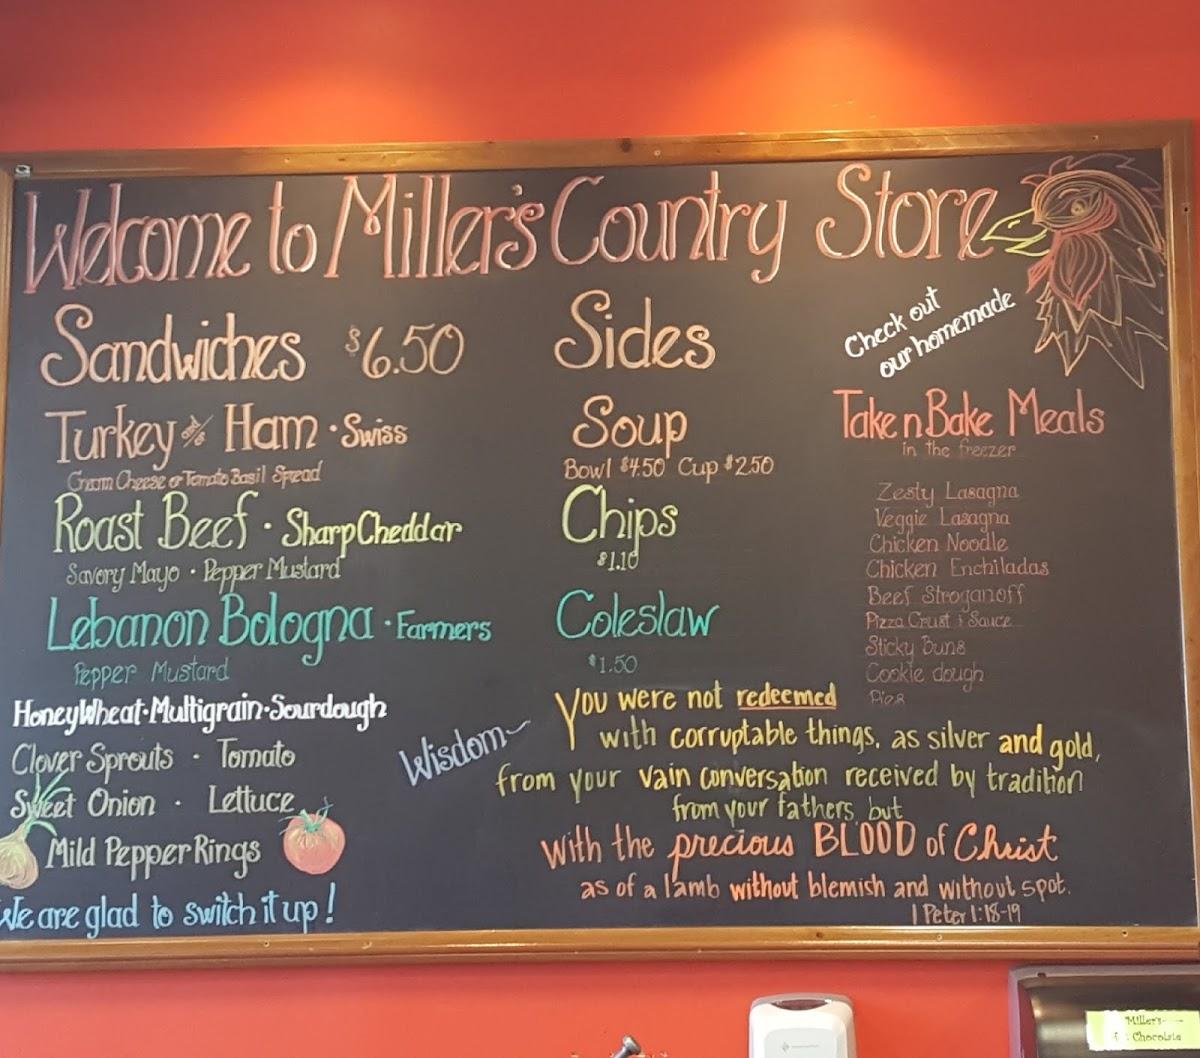 Welcome to Miller's Country Store
Sandwiches $6.50
Turkey and/or Ham · Swiss
Cream Cheese or Tomato Basil Spread
Roast Beef · Sharp Cheddar
Savory Mayo · Pepper Mustard
Lebanon Bologna · Farmers
Pepper Mustard
Honey Wheat · Multigrain · Sourdough
Clover Sprouts · Tomato
Sweet Onion · Lettuce
Mild Pepper Rings
We are glad to switch it up!
Sides
Soup
Bowl $4.50 Cup $2.50
Chips
$1.10
Coleslaw
$1.50
Check out
our homemade
Take n Bake Meals
in the freezer
Zesty Lasagna
Veggie Lasagna
Chicken Noodle
Chicken Enchiladas
Beef Stroganoff
Pizza Crust & Sauce
Sticky Buns
Cookie dough
Pies
Wisdom~
You were not redeemed
with corruptable things, as silver and gold,
from your vain conversation received by tradition
from your fathers, but
with the precious BLOOD of Christ
as of a lamb without blemish and without spot.
1 Peter 1:18-19
Miller's
Chocolate